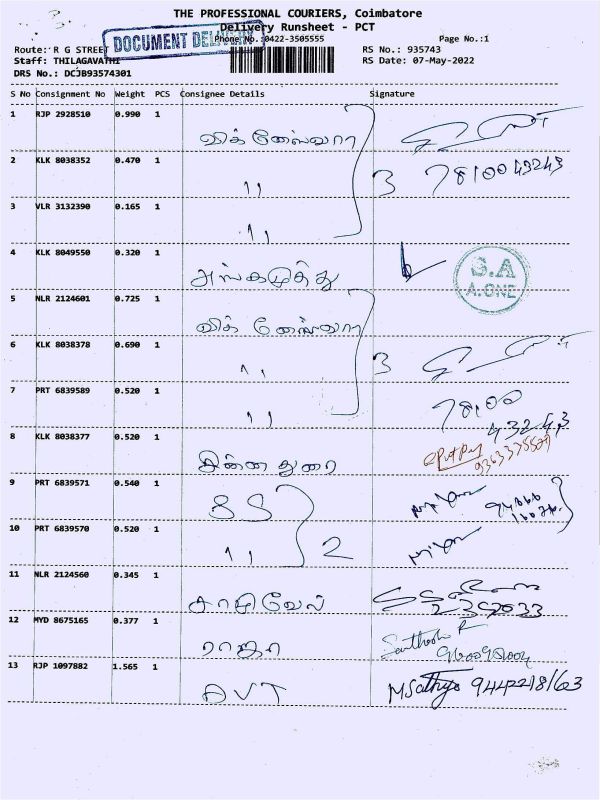 THE PROFESSIONAL COURIERS, Coimbatore
Delivery Runsheet - PCT
DOCUMENT DELIVERY
Phone No:0422-3505555 Page No.:1
Route: R G STREET RS No.: 935743
Staff: THILAGAVATHI RS Date: 07-May-2022
DRS No.: DCJB93574301
S No Consignment No Weight PCS Consignee Details Signature
1 RJP 2928510 0.990 1
விக்னேஸ்வரா
2 KLK 8038352 0.470 1
11 3 7810043243
3 VLR 3132390 0.165 1
11
4 KLK 8049550 0.320 1
அங்கமுத்து
S.A
A.ONE
5 NLR 2124601 0.725 1
விக்னேஸ்வரா
6 KLK 8038378 0.690 1
11 3
7 PRT 6839589 0.520 1
11 78100
43243
8 KLK 8038377 0.520 1
சின்னதுரை
9 PRT 6839571 0.540 1
SS
10 PRT 6839570 0.520 1
11 2
11 NLR 2124560 0.345 1
12 MYD 8675165 0.377 1
ராஜா Santhosh R
13 RJP 1097882 1.565 1
AVT MSathya